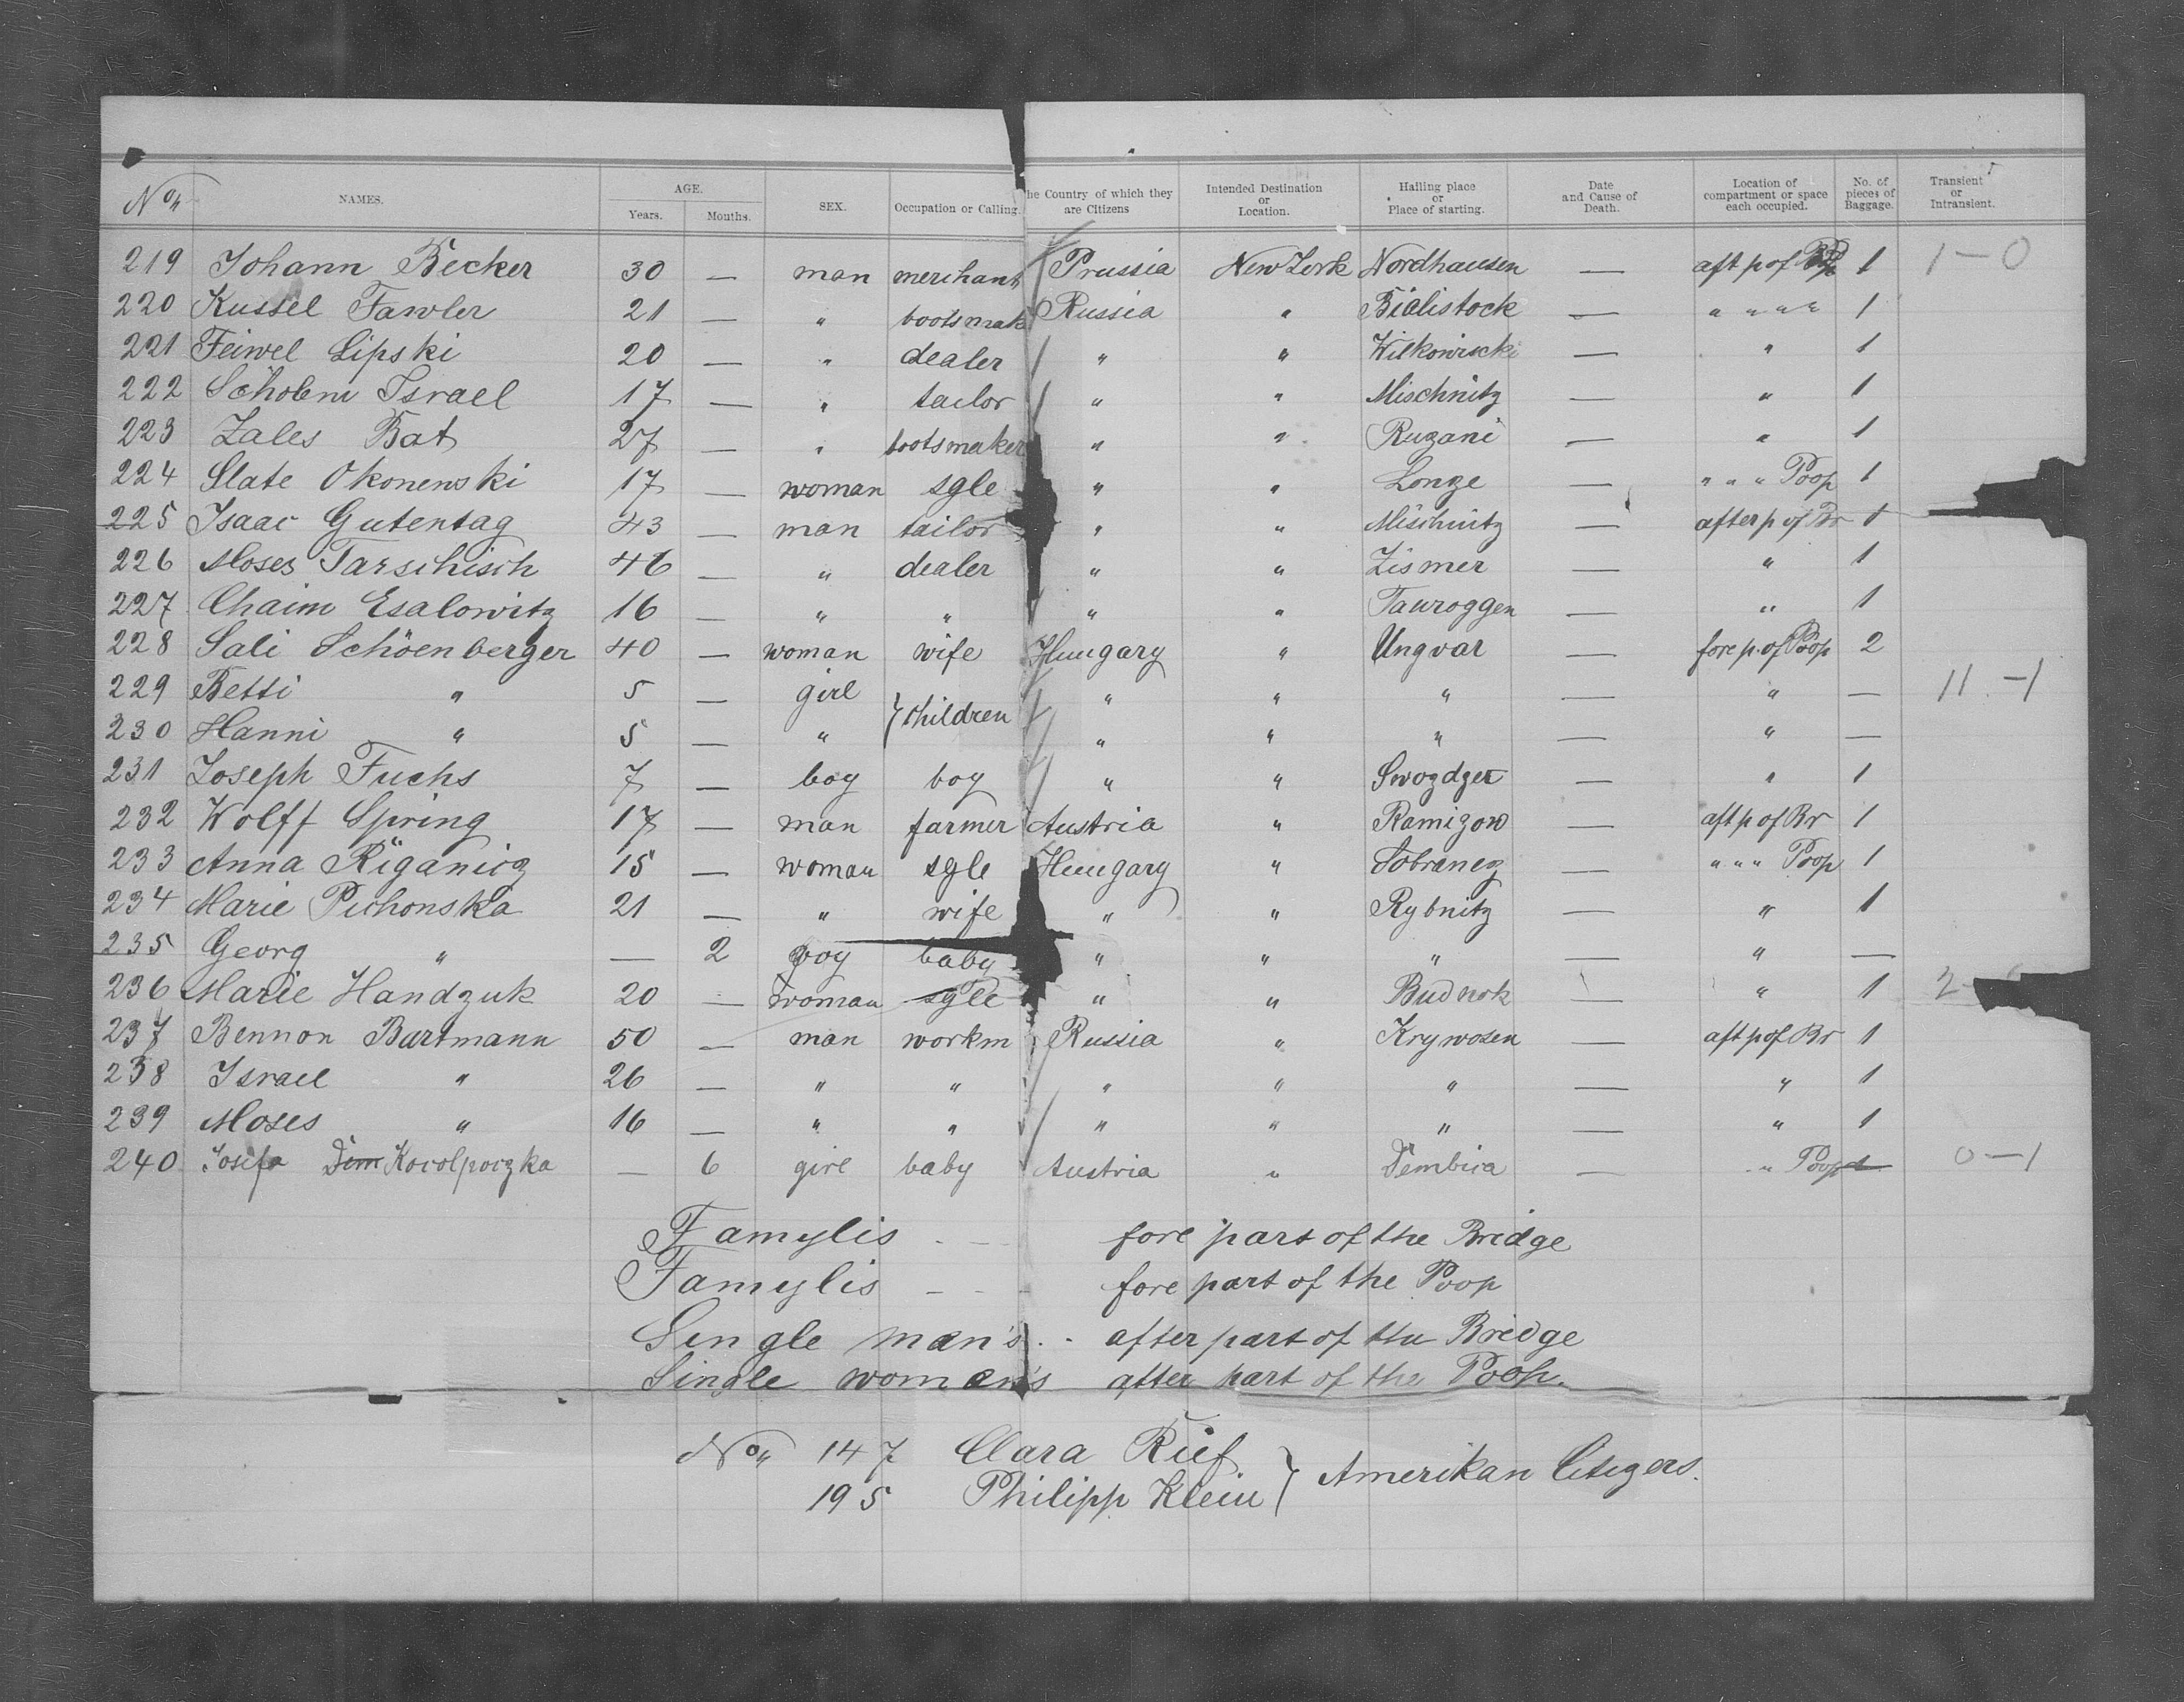 No. NAMES. AGE. Years. Months. SEX. Occupation or Calling. he Country of which they are Citizens Intended Destination or Location. Hailing place or Place of starting. Date and Cause of Death. Location of compartment or space each occupied. No. of pieces of Baggage. Transient or Intransient.
219 Johann Becker 30 — man merchant Prussia New York Nordhausen — aft p of 1 1-0
220 Kussel Fawler 21 — " bootsmak Russia " Bialistock — " " " " 1
221 Feiwel Lipski 20 — " dealer " " Wilkowiscki — " 1
222 Scholem Israel 17 — " tailor " " Mischnitz — " 1
223 Zales Bat 27 — " bootsmaker " " Ruzani — " 1
224 Slate Okonewski 17 — woman sgle " " Lonze — " " " Poop 1
225 Isaac Gutentag 43 — man tailor " " Mischnitz — after p of Br 1
226 Moses Tarschisch 46 — " dealer " " Zismer — " 1
227 Chaim Esalowitz 16 — " " " " Tauroggen — " 1
228 Sali Schöenberger 40 — woman wife Hungary " Ungvar — fore p. of Poop 2
229 Betti " 5 — girl } children " " " — " — 11-1
230 Hanni " 5 — " " " " — " —
231 Joseph Fuchs 7 — boy boy " " Swozdger — " 1
232 Wolff Spring 17 — man farmer Austria " Ramizow — aft p of Br 1
233 Anna Riganicz 15 — woman sgle Hungary " Sobranez — " " " Poop 1
234 Marie Pichonska 21 — " wife " " Rybnitz — " 1
235 Georg " — 2 boy baby " " " — " —
236 Marie Handzuk 20 — woman sgle " " Budnok — " 1 2
237 Bennon Bartmann 50 — man workm Russia " Krywosen — aft p of Br 1
238 Israel " 26 — " " " " " — " 1
239 Moses " 16 — " " " " " — " 1
240 Josefa Dem Kocolpoczka — 6 girl baby Austria " Dembica — " Poop 1 0-1
Famylis - — fore part of the Bridge
Famylis - - - fore part of the Poop
Single man's . - after part of the Bridge
Single woman's after part of the Poop.
No. 147 Clara Rief
195 Philipp Klein } Amerikan Citizens.